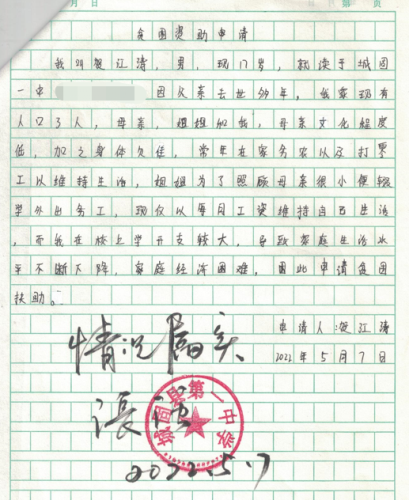 月 日 第 页
贫困资助申请
我叫贺江涛，男，现17岁，就读于城固
一中 因父亲去世多年，我家现有
人口3人，母亲，姐姐和我，母亲文化程度
低，加之身体欠佳，常年在家务农以及打零
工以维持生活，姐姐为了照顾母亲很小便辍
学外出务工，现仅以每月工资维持自己生活
，而我在校上学开支较大，导致家庭生活水
平不断下降，家庭经济困难，因此申请贫困
扶助。
申请人：贺江涛
2022年5月7日
情况属实
张
城固县第一中学
2022.5.7